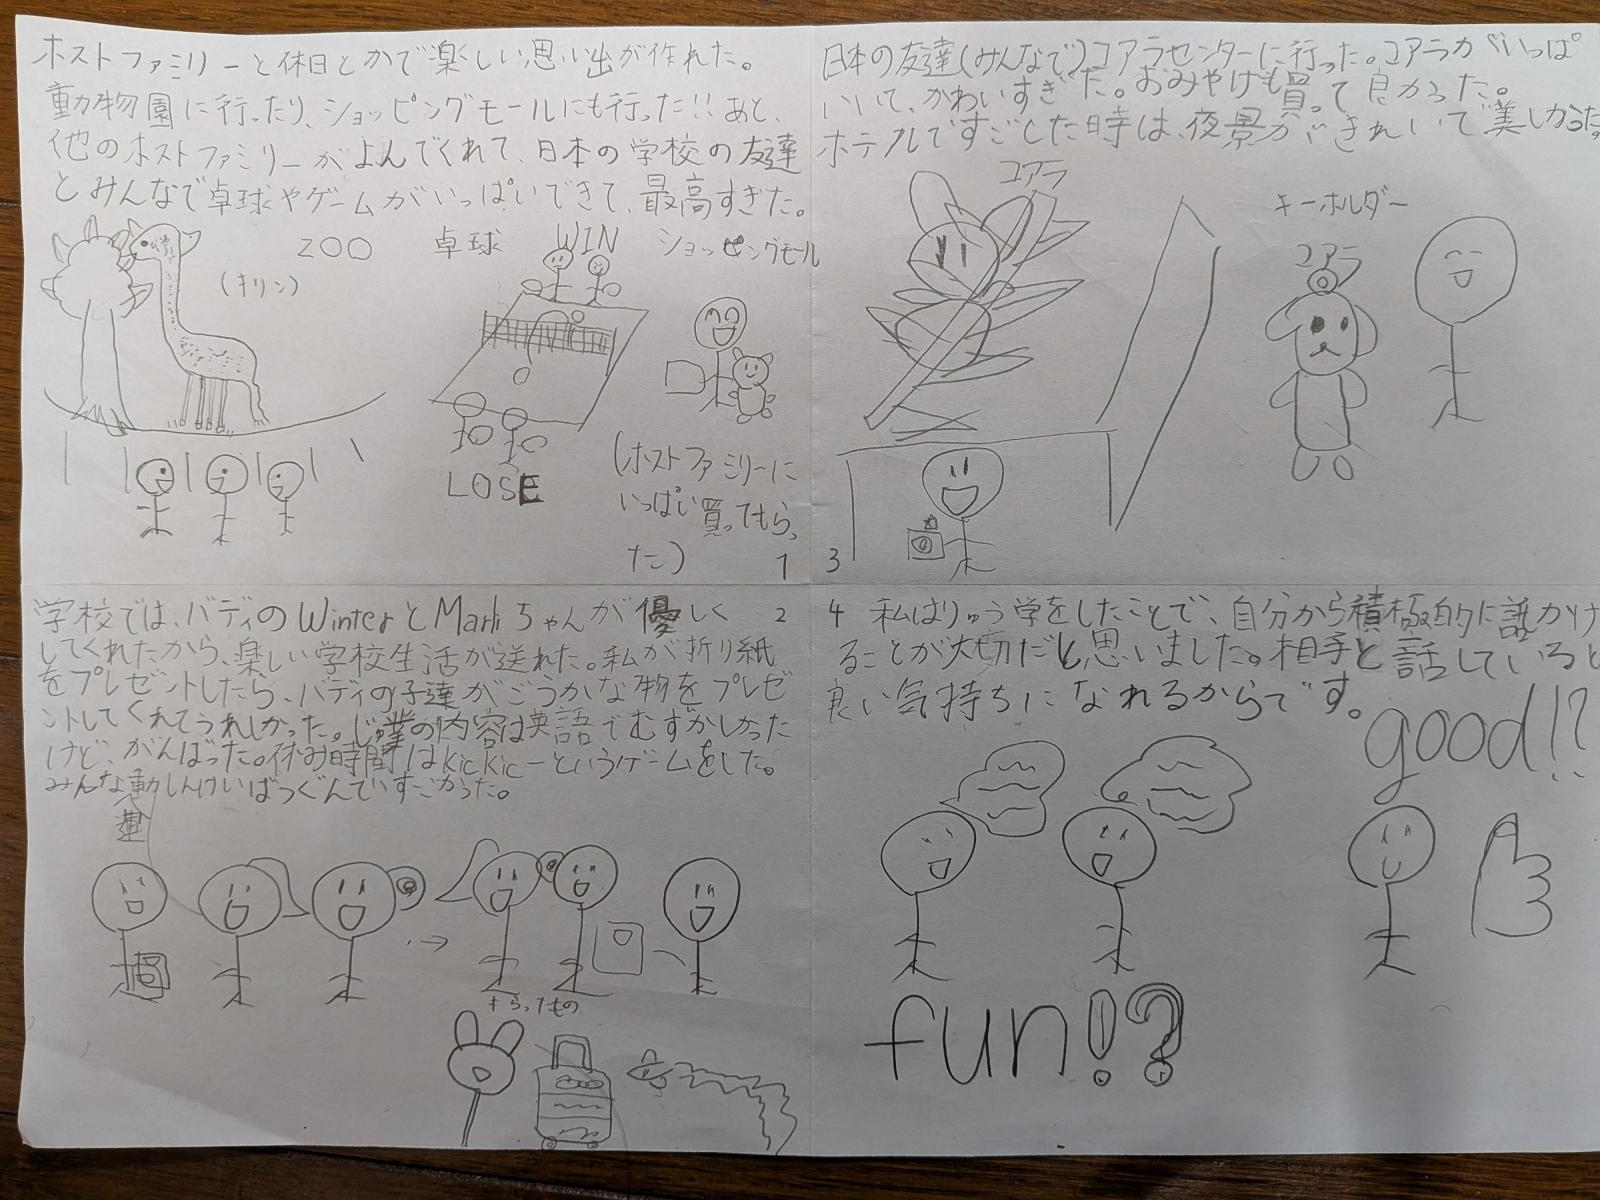 ホストファミリーと休日とかで楽しい思い出が作れた。
動物園に行ったり、ショッピングモールにも行った!!あと、
他のホストファミリーがよんでくれて、日本の学校の友達
とみんなで卓球やゲームがいっぱいできて、最高すぎた。
ZOO
(キリン)
卓球
WIN
LOSE
ショッピングモール
(ホストファミリーに
いっぱい買ってもらっ
た)
1
学校では、バディのWinterとMarliちゃんが優しく
2
してくれたから、楽しい学校生活が送れた。私が折り紙
をプレゼントしたら、バディの子達がごうかな物をプレゼ
ントしてくれてうれしかった。じゅ業の内容は英語でむずかしかった
けど、がんばった。休み時間はkic kicーというゲームをした。
みんな動しんけいばつぐんですごかった。
運
もらったもの
日本の友達(みんなで)コアラセンターに行った。コアラがいっぱ
いいて、かわいすぎた。おみやげも買って良かった。
ホテルですごした時は、夜景がきれいで美しかった。
コアラ
キーホルダー
コアラ
3
4 私はりゅう学をしたことで、自分から積極的に話かけ
ることが大切だと思いました。相手と話していると
良い気持ちになれるからです。
good!?
fun!?